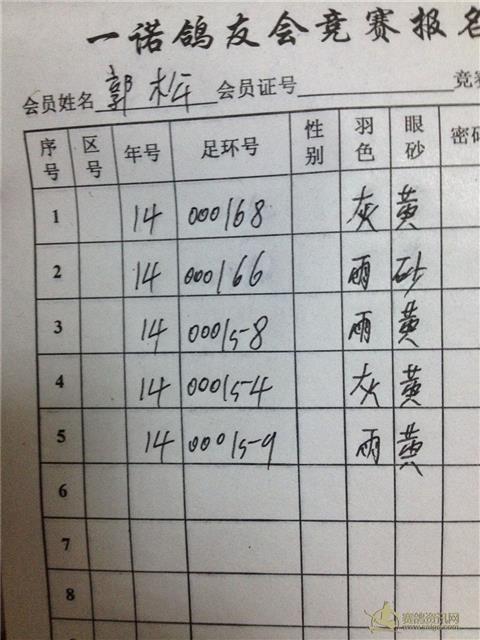 一诺鸽友会竞赛报名
会员姓名 郭 会员证号 竞赛
序号 区号 年号 足环号 性别 羽色 眼砂 密码
1 14 000168 灰 黄
2 14 000166 雨 砂
3 14 000158 雨 黄
4 14 000154 灰 黄
5 14 000159 雨 黄
6
7
8
赛鸽资讯网